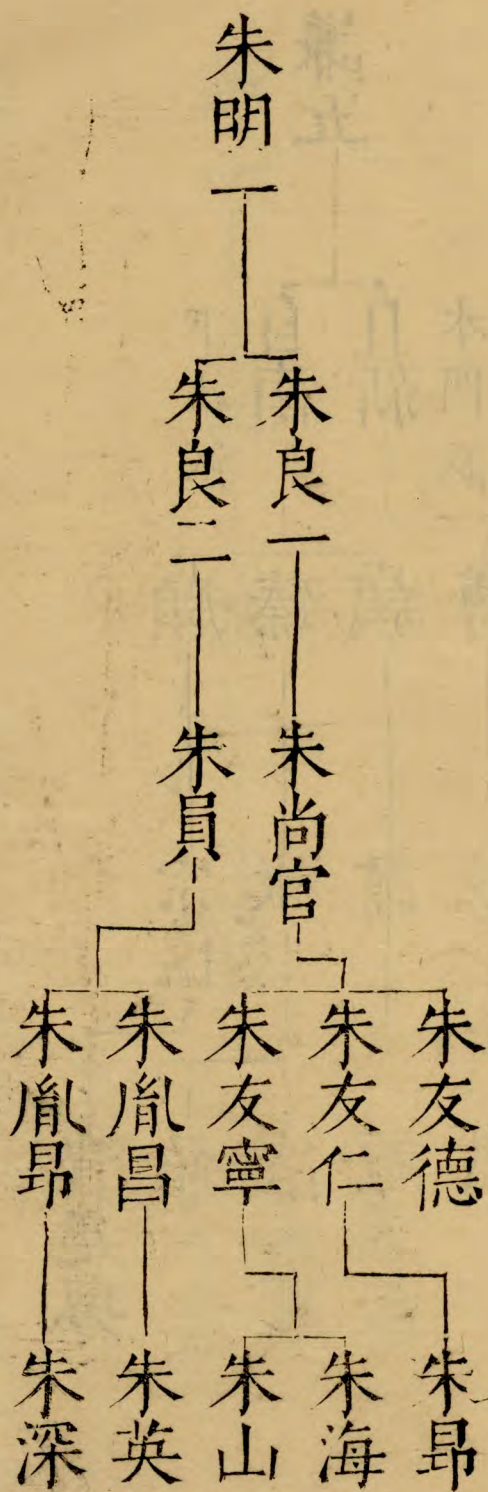 朱明一
朱良一
朱良二
朱尚官
朱員
朱友德
朱友仁
朱友寧
朱胤昌
朱胤昂
朱昂
朱海
朱山
朱英
朱深